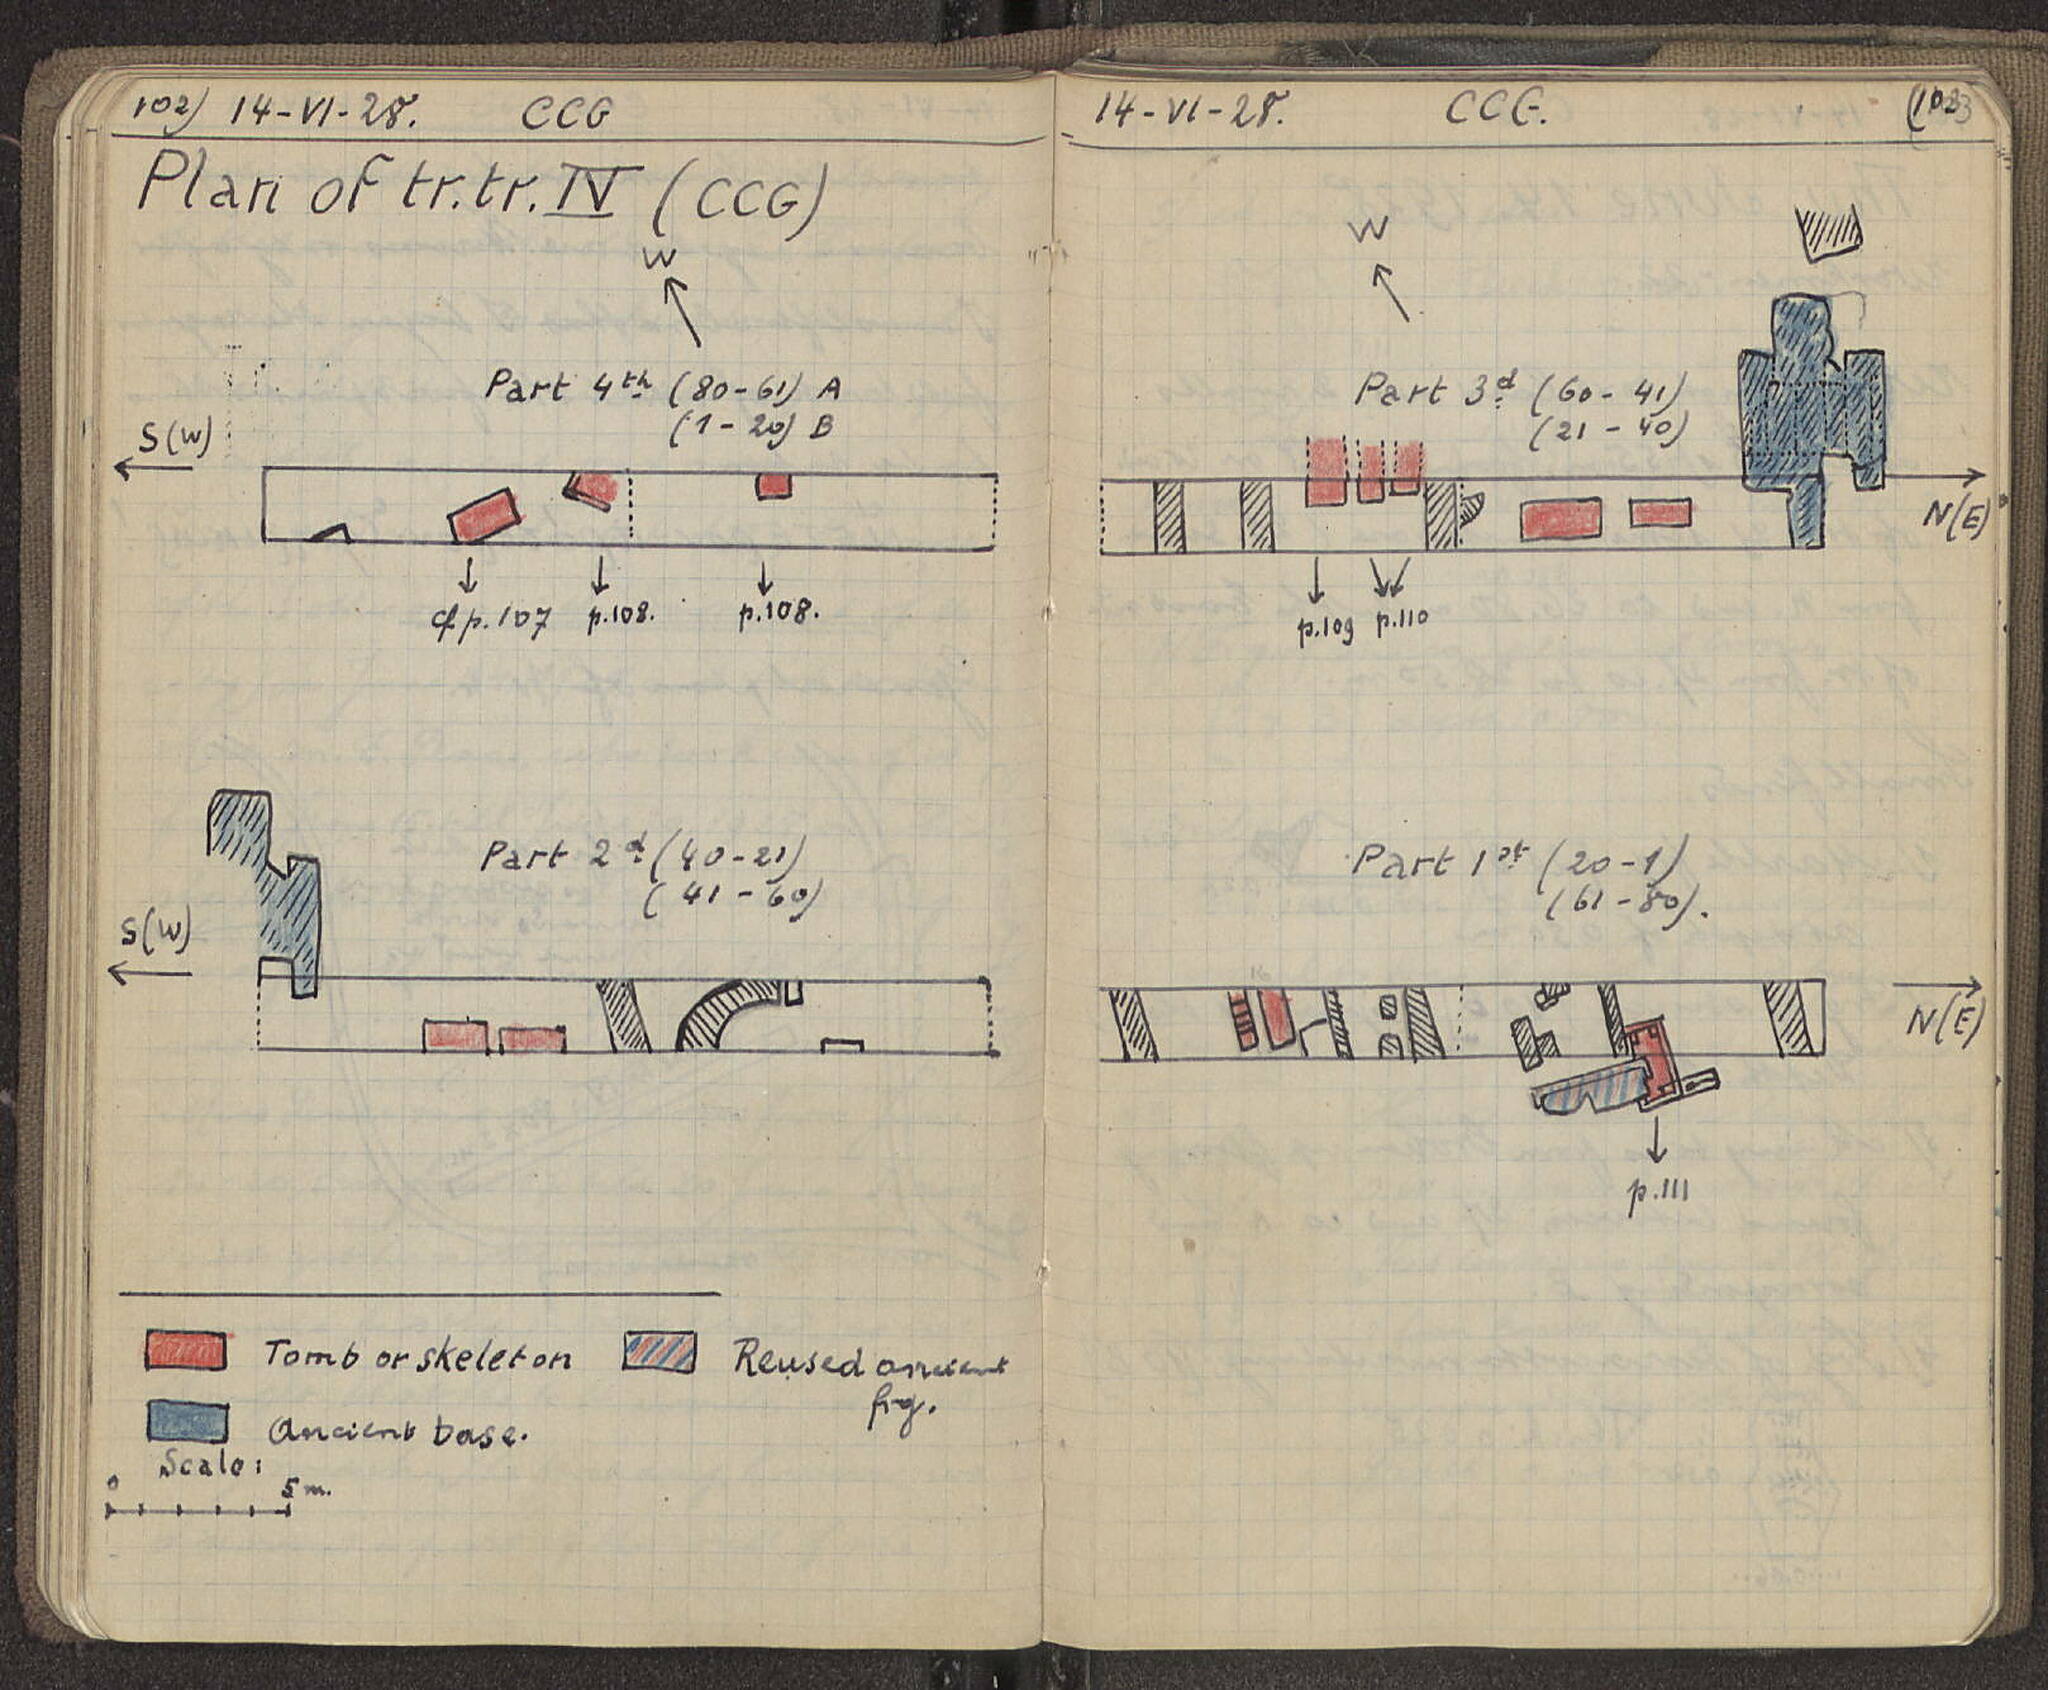 102) 14-VI-28. CCG
Plan of tr.tr. IV (CCG)
W
Part 4th (80-61) A
(1-20) B
S(W)
cf p.107 p.108. p.108.
Part 2d (40-21)
(41-60)
S(W)
Tomb or skeleton
Reused ancient
frg.
Ancient base.
Scale:
0 5 m.
14-VI-28. CCG. (103
W
Part 3d (60-41)
(21-40)
N(E)
p.109 p.110
Part 1st (20-1)
(61-80).
N(E)
p.111